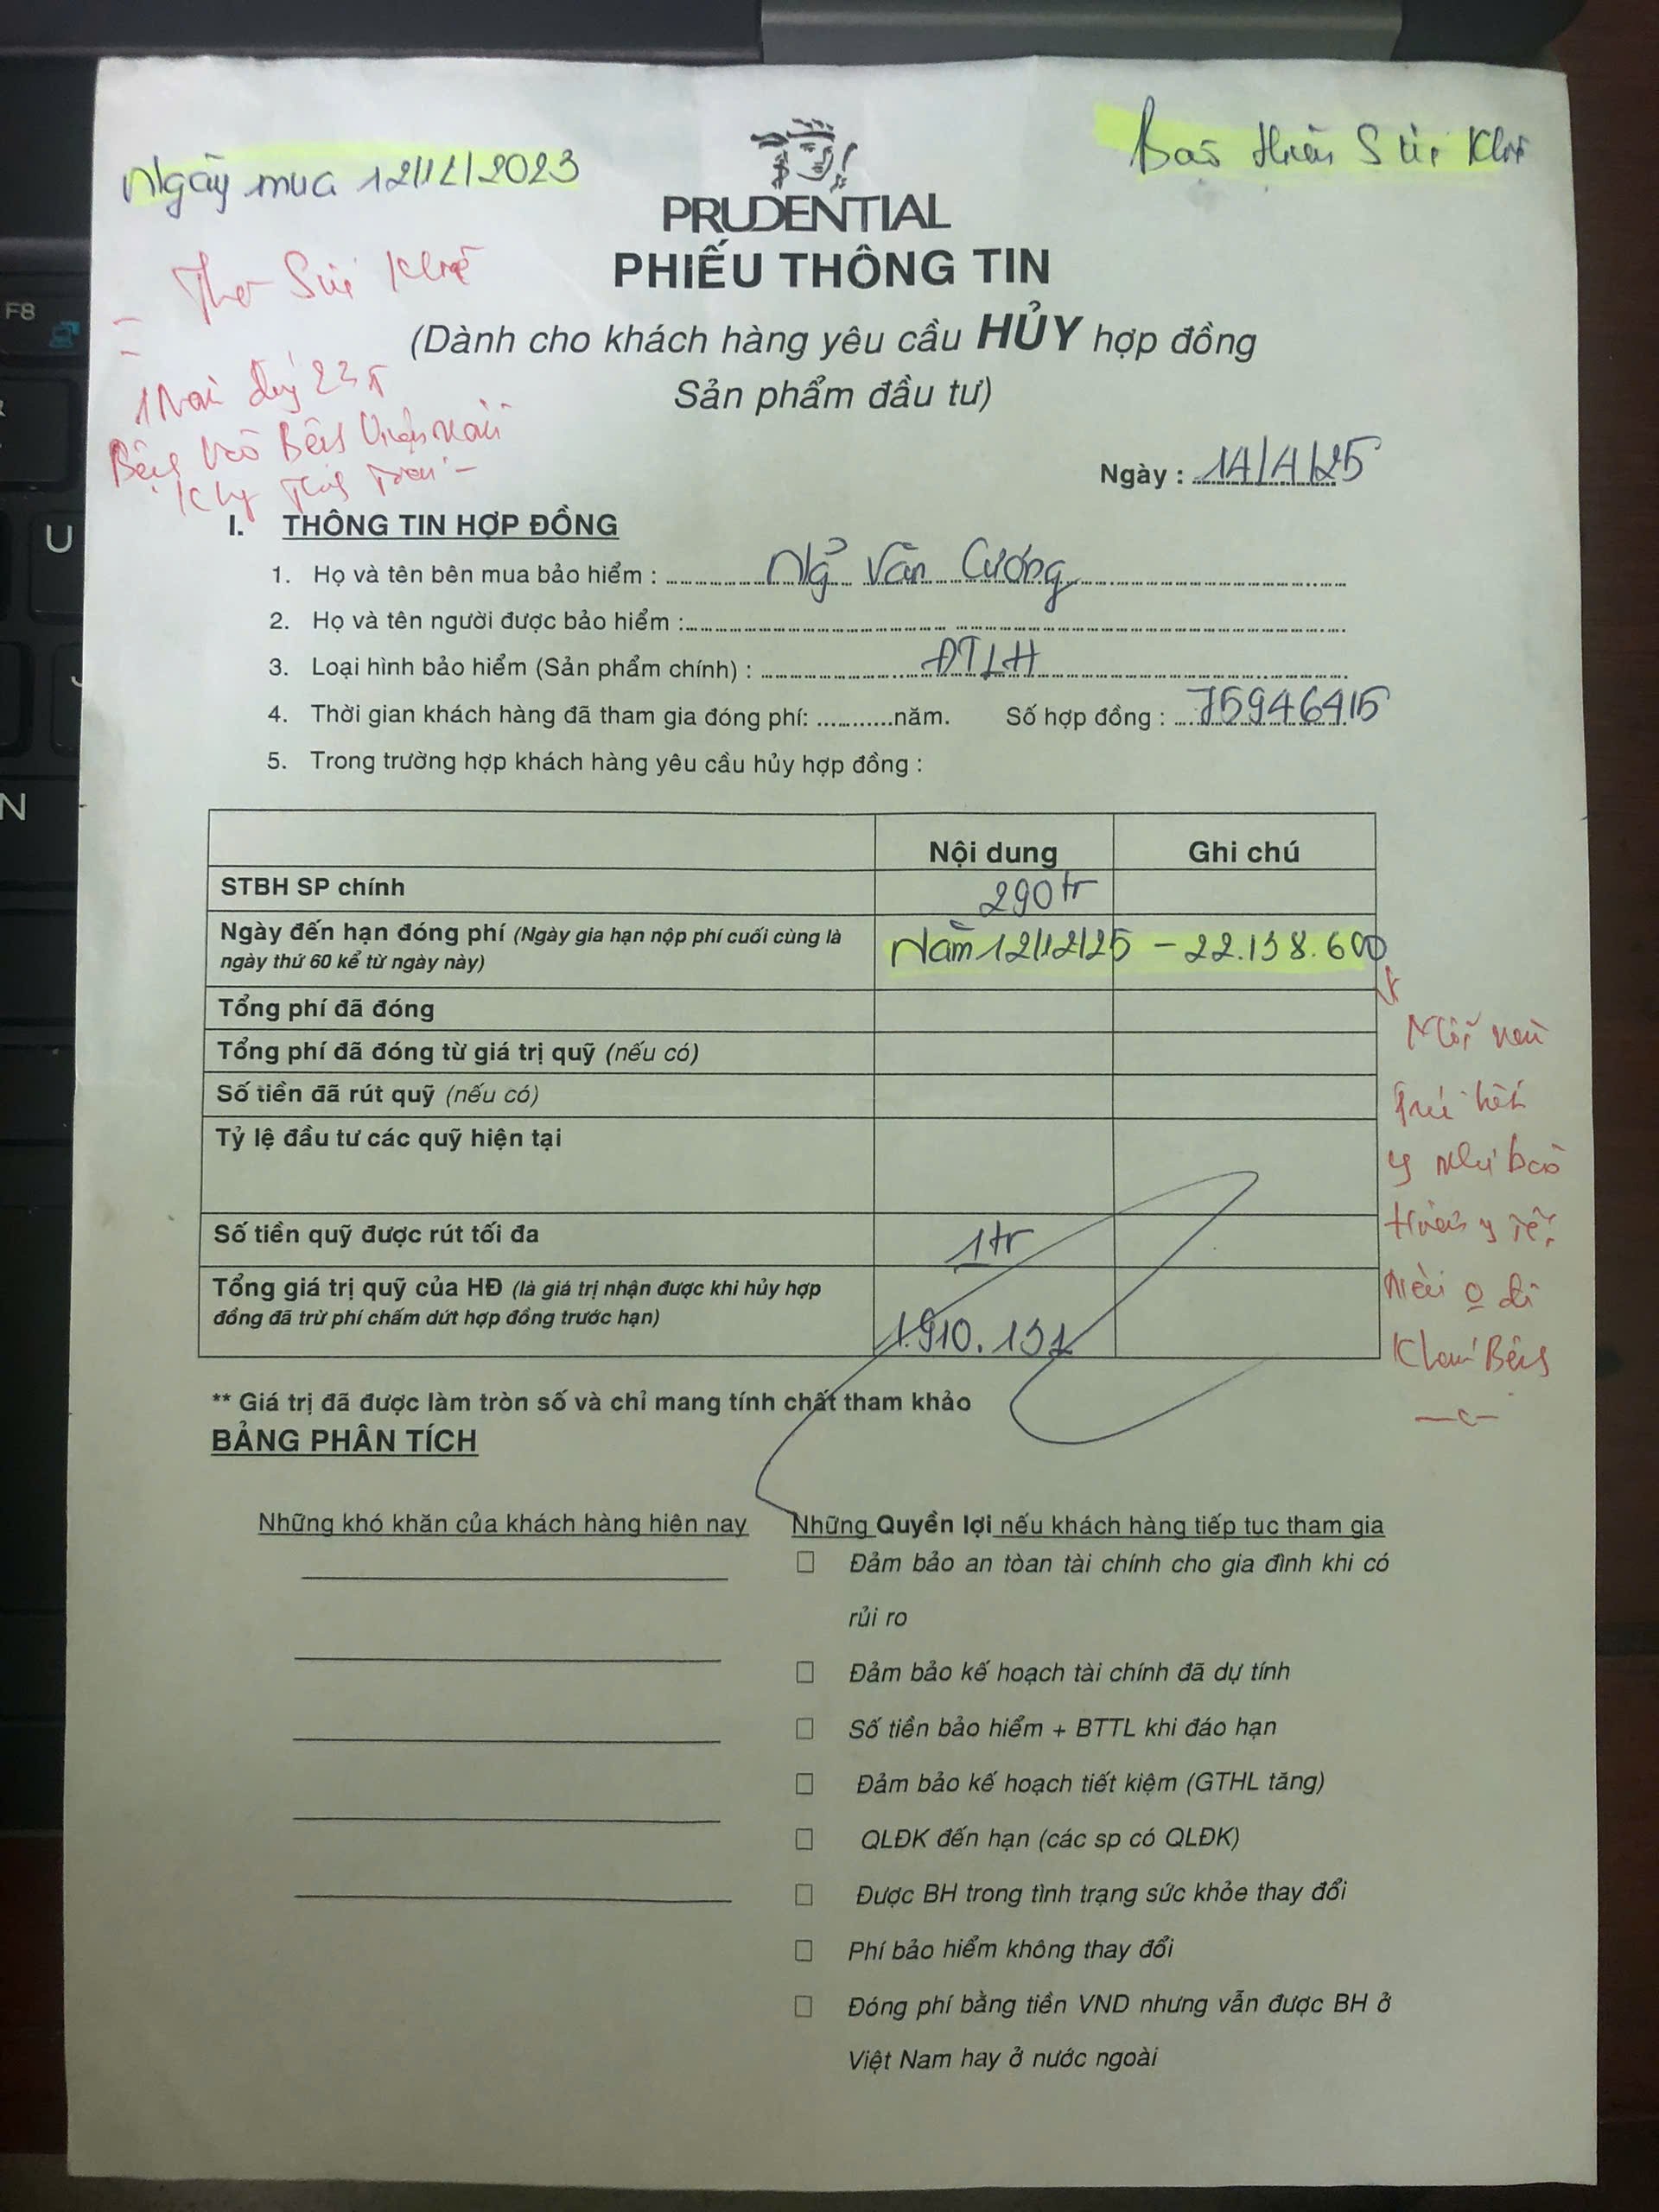 Ngày mua 12/12/2023
Bảo Hiểm Sức Khỏe
PRUDENTIAL
PHIẾU THÔNG TIN
(Dành cho khách hàng yêu cầu HỦY hợp đồng
Sản phẩm đầu tư)
Thẻ Sức Khỏe
1 Năm đóng 23tr
Bệnh vào Bệnh Viện
Ngày : 14/4/25
I. THÔNG TIN HỢP ĐỒNG
1. Họ và tên bên mua bảo hiểm : Ngô Văn Cương
2. Họ và tên người được bảo hiểm :
3. Loại hình bảo hiểm (Sản phẩm chính) : ĐTLH
4. Thời gian khách hàng đã tham gia đóng phí: ............năm. Số hợp đồng : 75946415
5. Trong trường hợp khách hàng yêu cầu hủy hợp đồng :
Nội dung Ghi chú
STBH SP chính 290tr
Ngày đến hạn đóng phí (Ngày gia hạn nộp phí cuối cùng là ngày thứ 60 kể từ ngày này) Năm 12/12/25 – 22.138.600
Tổng phí đã đóng
Tổng phí đã đóng từ giá trị quỹ (nếu có)
Số tiền đã rút quỹ (nếu có)
Tỷ lệ đầu tư các quỹ hiện tại
Số tiền quỹ được rút tối đa 1tr
Tổng giá trị quỹ của HĐ (là giá trị nhận được khi hủy hợp
đồng đã trừ phí chấm dứt hợp đồng trước hạn) 1.910.131
Mỗi năm
hết
như bảo
đi
Khám Bệnh
** Giá trị đã được làm tròn số và chỉ mang tính chất tham khảo
BẢNG PHÂN TÍCH
Những khó khăn của khách hàng hiện nay
Những Quyền lợi nếu khách hàng tiếp tục tham gia
Đảm bảo an tòan tài chính cho gia đình khi có
rủi ro
Đảm bảo kế hoạch tài chính đã dự tính
Số tiền bảo hiểm + BTTL khi đáo hạn
Đảm bảo kế hoạch tiết kiệm (GTHL tăng)
QLĐK đến hạn (các sp có QLĐK)
Được BH trong tình trạng sức khỏe thay đổi
Phí bảo hiểm không thay đổi
Đóng phí bằng tiền VND nhưng vẫn được BH ở
Việt Nam hay ở nước ngoài
F8
U
N